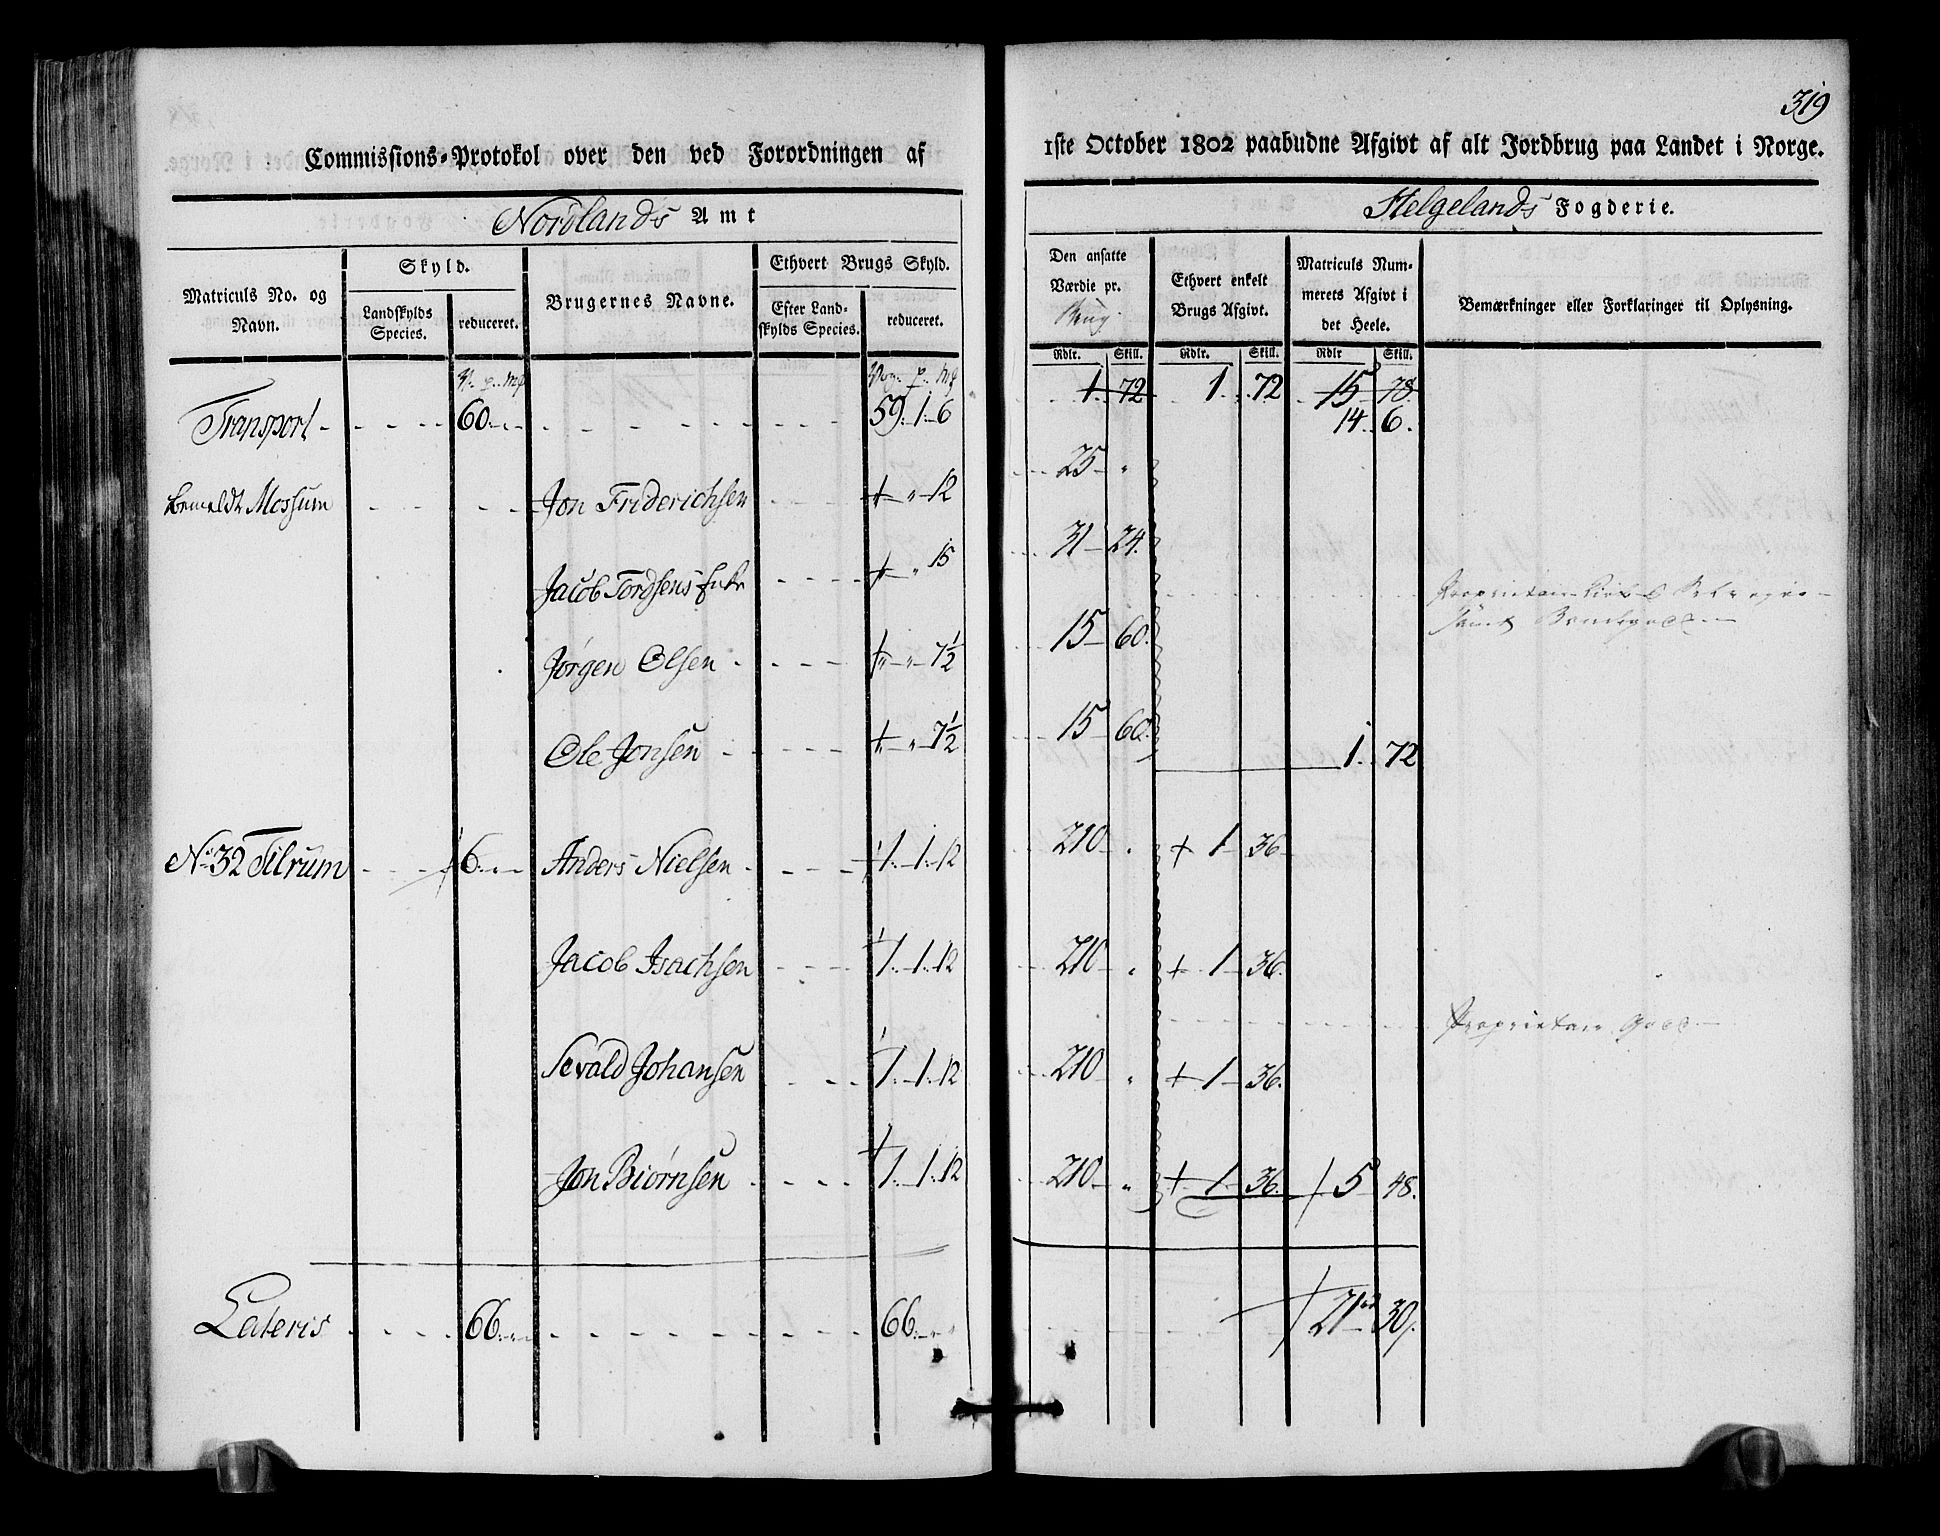 319
Commissions-Protokol over den ved Forordningen af
1ste October 1802 paabudne Afgivt af alt Jordbrug paa Landet i Norge.
Nordlands Amt
Helgelands Fogderie.
Matriculs No. og Navn.
Skyld.
Landskylds Species.
reduceret.
Brugernes Navne.
Ethvert Brugs Skyld.
Efter Landskylds Species.
reduceret.
Den ansatte Værdie pr. Brug.
Ethvert enkelt Brugs Afgivt.
Matriculs Nummerets Afgivt i det Heele.
Bemærkninger eller Forklaringer til Oplysning.
Rdlr. Skill. Rdlr. Skill. Rdlr Skill.
V. p. mƒ Vog. p. mƒ
1. 72 1. 72 15 78.
Transport 60. 59. 1. 6 14. 6.
bemeldt Mossum Jon Friderichsen 12 25 "
Jacob Tordsens Enke " 15 31 24.
Proprietair
samt
Jørgen Olsen " 7½ 15 60.
Ole Jonsen " 7½ 15 60. 1. 72
No 32 Tilrum 6. Anders Nielsen 1. 1. 12 210 " + 1 36
Jacob Isachsen 1. 1. 12 210 " + 1 36.
Proprietair Gods
Sevald Johansen 1. 1. 12 210 " + 1 36.
Jon Biørnsen 1. 1. 12 210 " + 1 36. 5 48.
Lateris 66. " 66. " " 21 30.